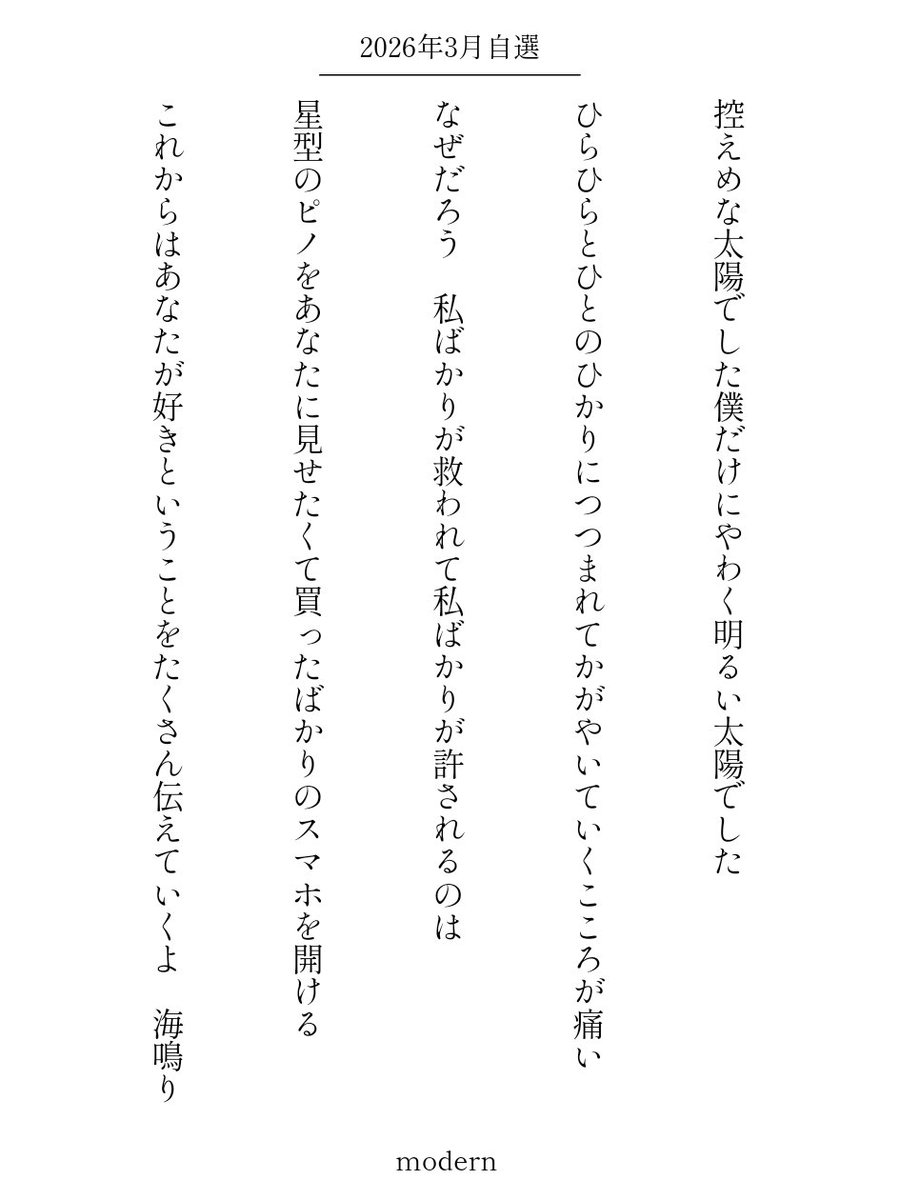 2026年3月自選
控えめな太陽でした僕だけにやわく明るい太陽でした
ひらひらとひとのひかりにつつまれてかがやいていくこころが痛い
なぜだろう　私ばかりが救われて私ばかりが許されるのは
星型のピノをあなたに見せたくて買ったばかりのスマホを開ける
これからはあなたが好きということをたくさん伝えていくよ　海鳴り
modern